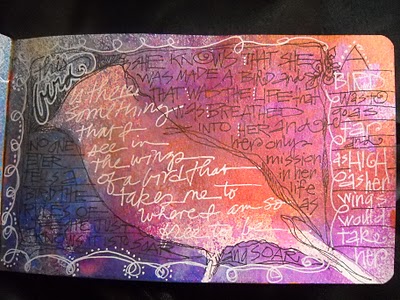 this
bird
SHE KNOWS THAT SHE
WAS MADE A BIRD and
THAT WAS THE LIFE that
WAS BREATHED
INTO HER and
her only
mission
in her
life
is there
something...
that I
see in
the wings
of a bird that
takes me to
where I am so
free to be
NO ONE
EVER
and SOAR
A
BIRD
was to
go as
far
and
as HIGH
as her
wings
would
take
her